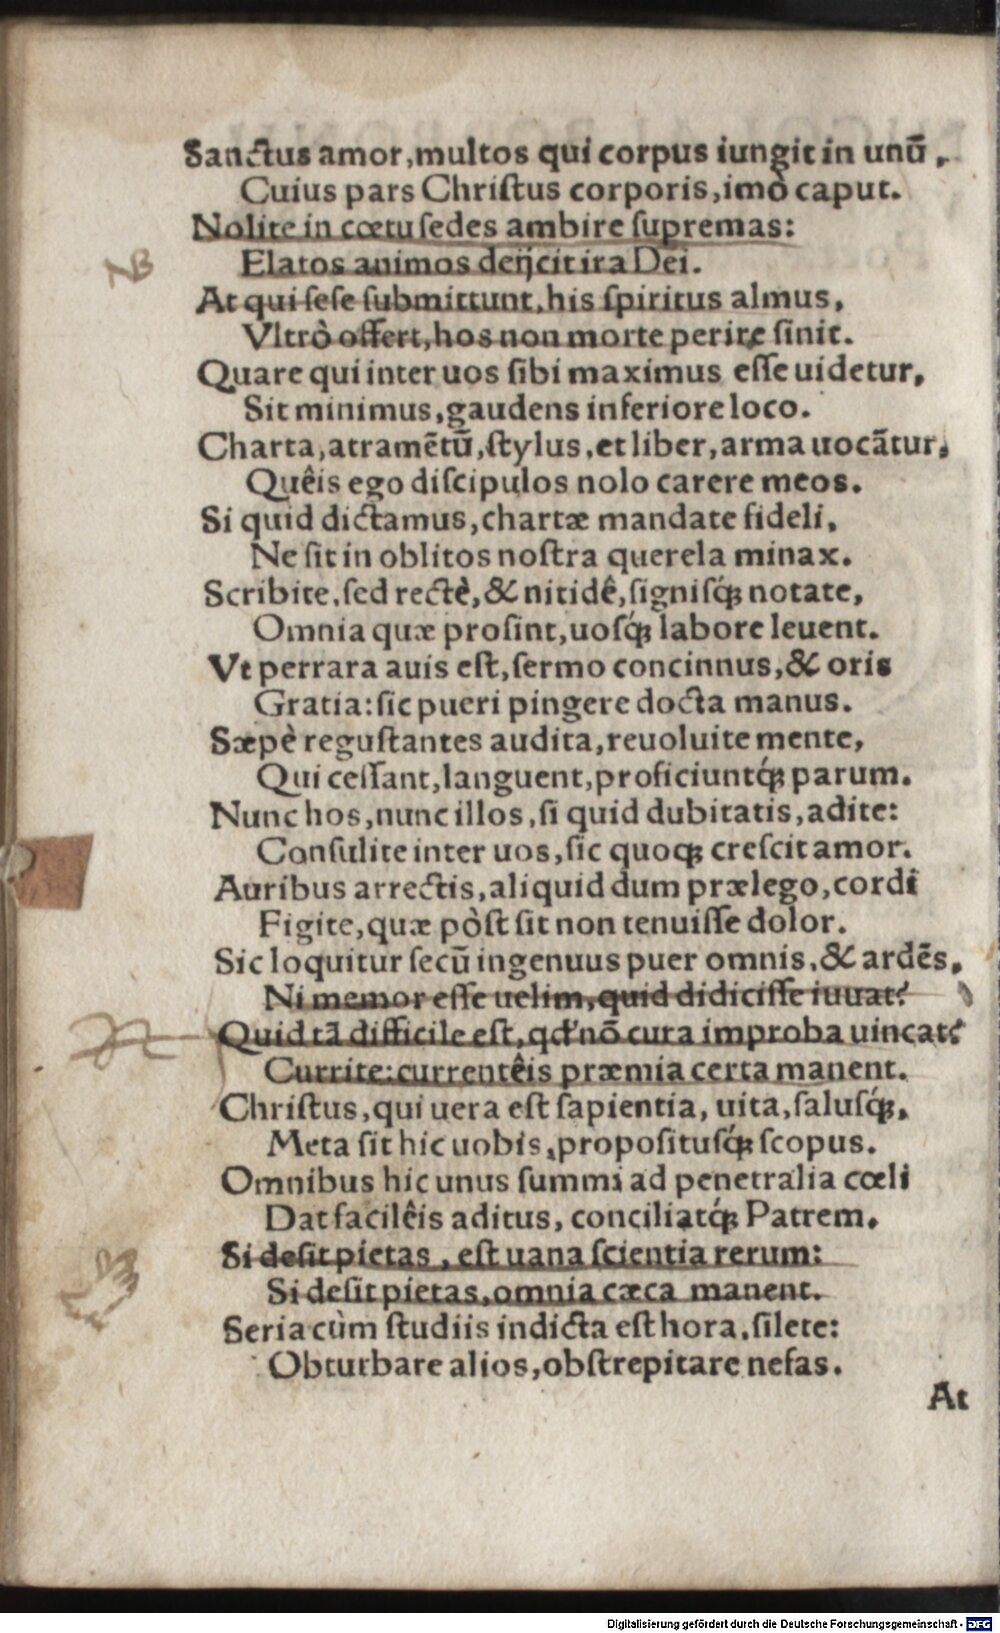 Sanctus amor, multos qui corpus iungit in unũ,
Cuius pars Chriſtus corporis, imò caput.
Nolite in cœtu ſedes ambire ſupremas:
NB
Elatos animos deijcit ira Dei.
At qui ſeſe ſubmittunt, his ſpiritus almus,
Vltrò offert, hos non morte perire ſinit.
Quare qui inter uos ſibi maximus eſſe uidetur,
Sit minimus, gaudens inferiore loco.
Charta, atramẽtũ, ſtylus, et liber, arma uocãtur,
Quêis ego diſcipulos nolo carere meos.
Si quid dictamus, chartæ mandate fideli,
Ne ſit in oblitos noſtra querela minax.
Scribite, ſed rectè, & nitidê, ſigniſq́ꝫ notate,
Omnia quæ proſint, uoſq́ꝫ labore leuent.
Vt perrara auis eſt, ſermo concinnus, & oris
Gratia: ſic pueri pingere docta manus.
Sæpè reguſtantes audita, reuoluite mente,
Qui ceſſant, languent, proficiuntq́ꝫ parum.
Nunc hos, nunc illos, ſi quid dubitatis, adite:
Conſulite inter uos, ſic quoqꝫ creſcit amor.
Auribus arrectis, aliquid dum prælego, cordi
Figite, quæ pòſt ſit non tenuiſſe dolor.
Sic loquitur ſecũ ingenuus puer omnis, & ardẽs,
Ni memor eſſe uelim, quid didiciſſe iuuat?
Quid tã difficile eſt, qđ nõ cura improba uincat?
Currite: currentêis præmia certa manent.
Chriſtus, qui uera eſt ſapientia, uita, ſaluſq́ꝫ,
Meta ſit hic uobis, propoſituſq́ꝫ ſcopus.
Omnibus hic unus ſummi ad penetralia cœli
Dat facilêis aditus, conciliatq́ꝫ Patrem.
Si deſit pietas, eſt uana ſcientia rerum:
Si deſit pietas, omnia cæca manent.
Seria cùm ſtudiis indicta eſt hora, ſilete:
Obturbare alios, obſtrepitare nefas.
At
Digitalisierung gefördert durch die Deutsche Forschungsgemeinschaft - DFG